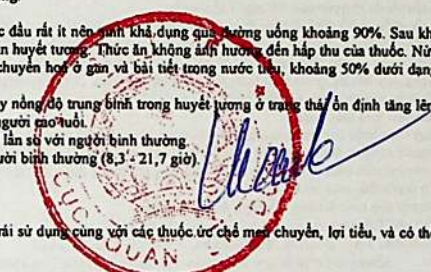 c đầu rất ít nên sinh khả dụng qua đường uống khoảng 90%. Sau kh
n huyết tương. Thức ăn không ảnh hưởng đến hấp thu của thuốc. Nử
chuyển hoá ở gan và bài tiết trong nước tiểu, khoảng 50% dưới dạng
y nồng độ trung bình trong huyết tương ở trạng thái ổn định tăng lên
người cao tuổi.
lần số với người bình thường.
ười bình thường (8,3 - 21,7 giờ).
rái sử dụng cùng với các thuốc ức chế men chuyển, lợi tiểu, và có thể
CỤC QUẢN